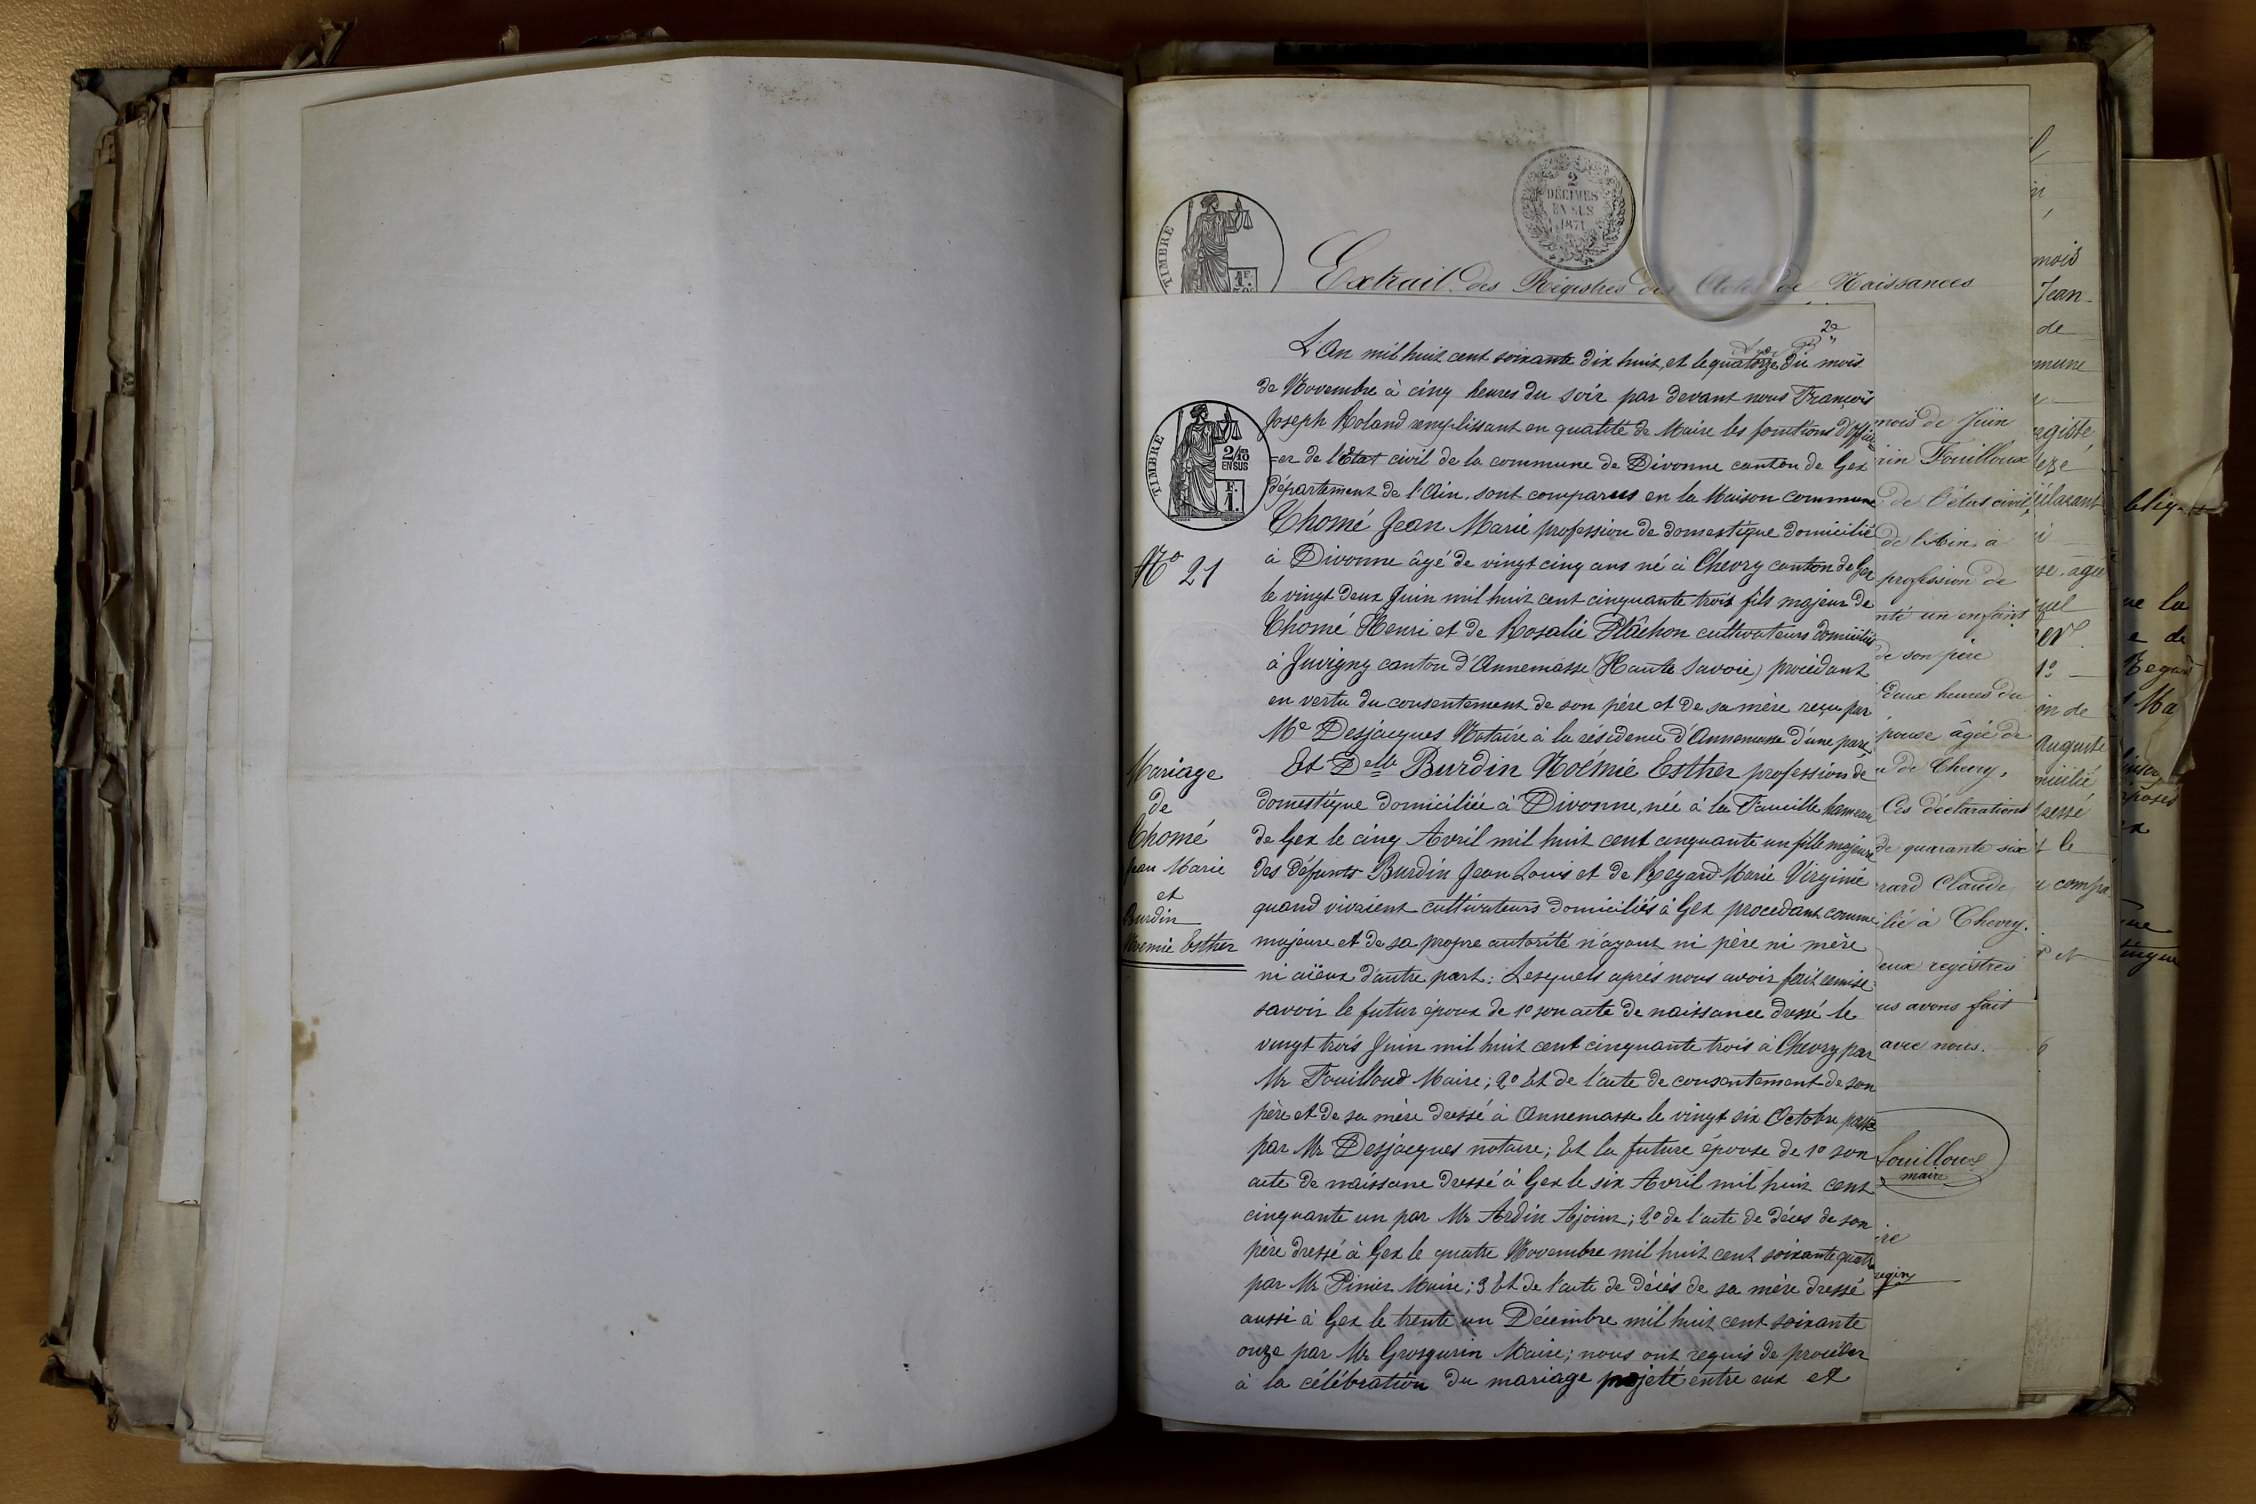 2
DÉCIMES
EN SUS
1871
TIMBRE
1F.
Extrait des Registres des Actes de Naissances
2e
L'An mil huit cent soixante dix huit, et le quatorze du mois
de Novembre à cinq heures du soir par devant nous François
Joseph Roland remplissant en qualité de Maire les fonctions d'offici
=er de l'Etat civil de la commune de Divonne canton de Gex
département de l'Ain, sont comparus en la Maison commune
Thomé Jean Marie profession de domestique domicilié
à Divonne âgé de vingt cinq ans né à Chevry canton de Gex
le vingt deux Juin mil huit cent cinquante trois fils majeur de
Thomé Henri et de Rosalie Plâchon cultivateurs domiciliés
à Juvigny canton d'Annemasse (Haute Savoie) procédant
en vertu du consentement de son père et de sa mère reçu par
Me Desjacques Notaire à la résidence d'Annemasse d'une part
Et Delle Burdin Noémie Esther profession de
domestique domiciliée à Divonne, née à la Faucille hameau
de Gex le cinq Avril mil huit cent cinquante un fille majeure
des défunts Burdin Jean Louis et de Regard Marie Virginie
quand vivaient cultivateurs domiciliés à Gex procedant comme
majeure et de sa propre autorité n'ayant ni père ni mère
ni aïeux d'autre part: Lesquels après nous avoir fait remise
savoir le futur époux de 1o son acte de naissance dressé le
vingt trois Juin mil huit cent cinquante trois à Chevry par
Mr Fouilloud Maire; 2o Et de l'acte de consentement de son
père et de sa mère dressé à Annemasse le vingt six Octobre passé
par Mr Desjacques notaire; Et la future épouse de 1o son
acte de naissane dressé à Gex le six Avril mil huit cent
cinquante un par Mr Ardin Ajoint; 2o de l'acte de décès de son
père dressé à Gex le quatre Novembre mil huit cent soixante quatre
par Mr Pinier Maire; 3 Et de l'acte de décès de sa mère dressé
aussi à Gex le trente un Décembre mil huit cent soixante
onze par Mr Grosgurin Maire; nous ont requis de procéder
à la célébration du mariage projeté entre eux et
TIMBRE
2/10
EN SUS
F.
1.
No 21
Mariage
de
Thomé
Jean Marie
et
Burdin
Noemie Esther
mois de Juin
rin Fouilloux
de l'état civil
de l'Ain à
profession de
nté un enfant
de son père
deux heures du
épouse âgée de
de Chevry,
Ces déclarations
de quarante six
rard Claude
ilié à Chevry.
deux registres
us avons fait
avec nous.
Fouilloux
maire
mois
Jean-
de
mmune
Auguste
micilié
dressé
t le
u compa
ue la
e de
Regard